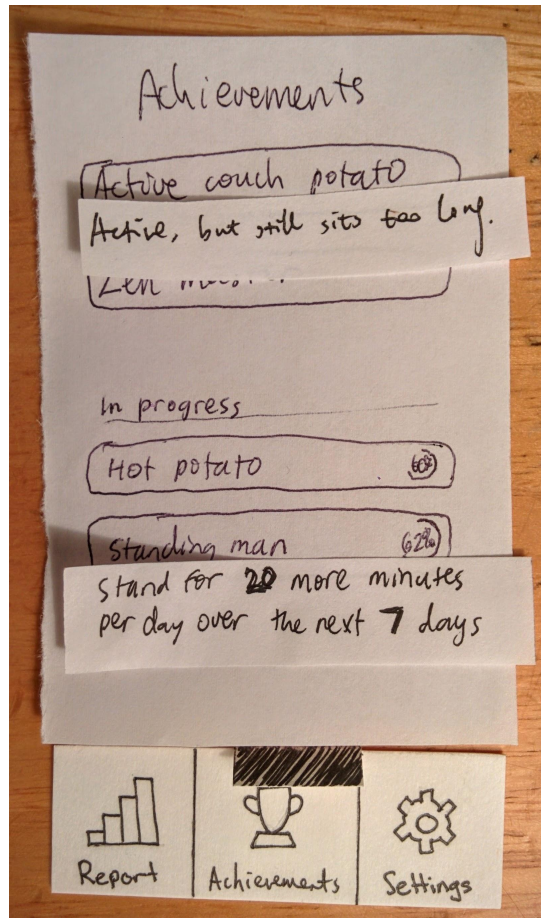 Achievements
Active couch potato
Active, but still sits too long.
Zen
In progress
Hot potato 60%
Standing man 62%
Stand for 20 more minutes
per day over the next 7 days
Report Achievements Settings